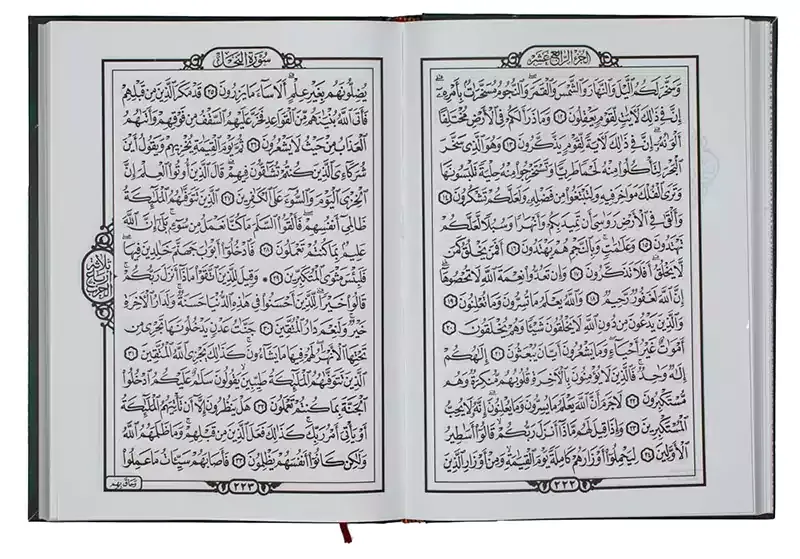 الجزء الرابع عشر
وَسَخَّرَ لَكُمُ اللَّيْلَ وَالنَّهَارَ وَالشَّمْسَ وَالْقَمَرَ وَالنُّجُومُ مُسَخَّرَاتٌ بِأَمْرِهِ
إِنَّ فِي ذَلِكَ لَآيَاتٍ لِقَوْمٍ يَعْقِلُونَ ١٢ وَمَا ذَرَأَ لَكُمْ فِي الْأَرْضِ مُخْتَلِفًا
أَلْوَانُهُ إِنَّ فِي ذَلِكَ لَآيَةً لِقَوْمٍ يَذَّكَّرُونَ ١٣ وَهُوَ الَّذِي سَخَّرَ
الْبَحْرَ لِتَأْكُلُوا مِنْهُ لَحْمًا طَرِيًّا وَتَسْتَخْرِجُوا مِنْهُ حِلْيَةً تَلْبَسُونَهَا
وَتَرَى الْفُلْكَ مَوَاخِرَ فِيهِ وَلِتَبْتَغُوا مِنْ فَضْلِهِ وَلَعَلَّكُمْ تَشْكُرُونَ ١٤
وَأَلْقَى فِي الْأَرْضِ رَوَاسِيَ أَنْ تَمِيدَ بِكُمْ وَأَنْهَارًا وَسُبُلًا لَعَلَّكُمْ
تَهْتَدُونَ ١٥ وَعَلَامَاتٍ وَبِالنَّجْمِ هُمْ يَهْتَدُونَ ١٦ أَفَمَنْ يَخْلُقُ كَمَنْ
لَا يَخْلُقُ أَفَلَا تَذَكَّرُونَ ١٧ وَإِنْ تَعُدُّوا نِعْمَةَ اللَّهِ لَا تُحْصُوهَا
إِنَّ اللَّهَ لَغَفُورٌ رَحِيمٌ ١٨ وَاللَّهُ يَعْلَمُ مَا تُسِرُّونَ وَمَا تُعْلِنُونَ ١٩
وَالَّذِينَ يَدْعُونَ مِنْ دُونِ اللَّهِ لَا يَخْلُقُونَ شَيْئًا وَهُمْ يُخْلَقُونَ ٢٠
أَمْوَاتٌ غَيْرُ أَحْيَاءٍ وَمَا يَشْعُرُونَ أَيَّانَ يُبْعَثُونَ ٢١ إِلَهُكُمْ
إِلَهٌ وَاحِدٌ فَالَّذِينَ لَا يُؤْمِنُونَ بِالْآخِرَةِ قُلُوبُهُمْ مُنْكِرَةٌ وَهُمْ
مُسْتَكْبِرُونَ ٢٢ لَا جَرَمَ أَنَّ اللَّهَ يَعْلَمُ مَا يُسِرُّونَ وَمَا يُعْلِنُونَ إِنَّهُ لَا يُحِبُّ
الْمُسْتَكْبِرِينَ ٢٣ وَإِذَا قِيلَ لَهُمْ مَاذَا أَنْزَلَ رَبُّكُمْ قَالُوا أَسَاطِيرُ
الْأَوَّلِينَ ٢٤ لِيَحْمِلُوا أَوْزَارَهُمْ كَامِلَةً يَوْمَ الْقِيَامَةِ وَمِنْ أَوْزَارِ الَّذِينَ
٢٢٢
سورة النحل
يُضِلُّونَهُمْ بِغَيْرِ عِلْمٍ أَلَا سَاءَ مَا يَزِرُونَ ٢٥ قَدْ مَكَرَ الَّذِينَ مِنْ قَبْلِهِمْ
فَأَتَى اللَّهُ بُنْيَانَهُمْ مِنَ الْقَوَاعِدِ فَخَرَّ عَلَيْهِمُ السَّقْفُ مِنْ فَوْقِهِمْ وَأَتَاهُمُ
الْعَذَابُ مِنْ حَيْثُ لَا يَشْعُرُونَ ٢٦ ثُمَّ يَوْمَ الْقِيَامَةِ يُخْزِيهِمْ وَيَقُولُ أَيْنَ
شُرَكَائِيَ الَّذِينَ كُنْتُمْ تُشَاقُّونَ فِيهِمْ قَالَ الَّذِينَ أُوتُوا الْعِلْمَ إِنَّ
الْخِزْيَ الْيَوْمَ وَالسُّوءَ عَلَى الْكَافِرِينَ ٢٧ الَّذِينَ تَتَوَفَّاهُمُ الْمَلَائِكَةُ
ظَالِمِي أَنْفُسِهِمْ فَأَلْقَوُا السَّلَمَ مَا كُنَّا نَعْمَلُ مِنْ سُوءٍ بَلَى إِنَّ اللَّهَ
عَلِيمٌ بِمَا كُنْتُمْ تَعْمَلُونَ ٢٨ فَادْخُلُوا أَبْوَابَ جَهَنَّمَ خَالِدِينَ فِيهَا
فَلَبِئْسَ مَثْوَى الْمُتَكَبِّرِينَ ٢٩ وَقِيلَ لِلَّذِينَ اتَّقَوْا مَاذَا أَنْزَلَ رَبُّكُمْ
قَالُوا خَيْرًا لِلَّذِينَ أَحْسَنُوا فِي هَذِهِ الدُّنْيَا حَسَنَةٌ وَلَدَارُ الْآخِرَةِ
خَيْرٌ وَلَنِعْمَ دَارُ الْمُتَّقِينَ ٣٠ جَنَّاتُ عَدْنٍ يَدْخُلُونَهَا تَجْرِي مِنْ
تَحْتِهَا الْأَنْهَارُ لَهُمْ فِيهَا مَا يَشَاءُونَ كَذَلِكَ يَجْزِي اللَّهُ الْمُتَّقِينَ ٣١
الَّذِينَ تَتَوَفَّاهُمُ الْمَلَائِكَةُ طَيِّبِينَ يَقُولُونَ سَلَامٌ عَلَيْكُمُ ادْخُلُوا
الْجَنَّةَ بِمَا كُنْتُمْ تَعْمَلُونَ ٣٢ هَلْ يَنْظُرُونَ إِلَّا أَنْ تَأْتِيَهُمُ الْمَلَائِكَةُ
أَوْ يَأْتِيَ أَمْرُ رَبِّكَ كَذَلِكَ فَعَلَ الَّذِينَ مِنْ قَبْلِهِمْ وَمَا ظَلَمَهُمُ اللَّهُ
وَلَكِنْ كَانُوا أَنْفُسَهُمْ يَظْلِمُونَ ٣٣ فَأَصَابَهُمْ سَيِّئَاتُ مَا عَمِلُوا
وحاق بهم
٢٢٣